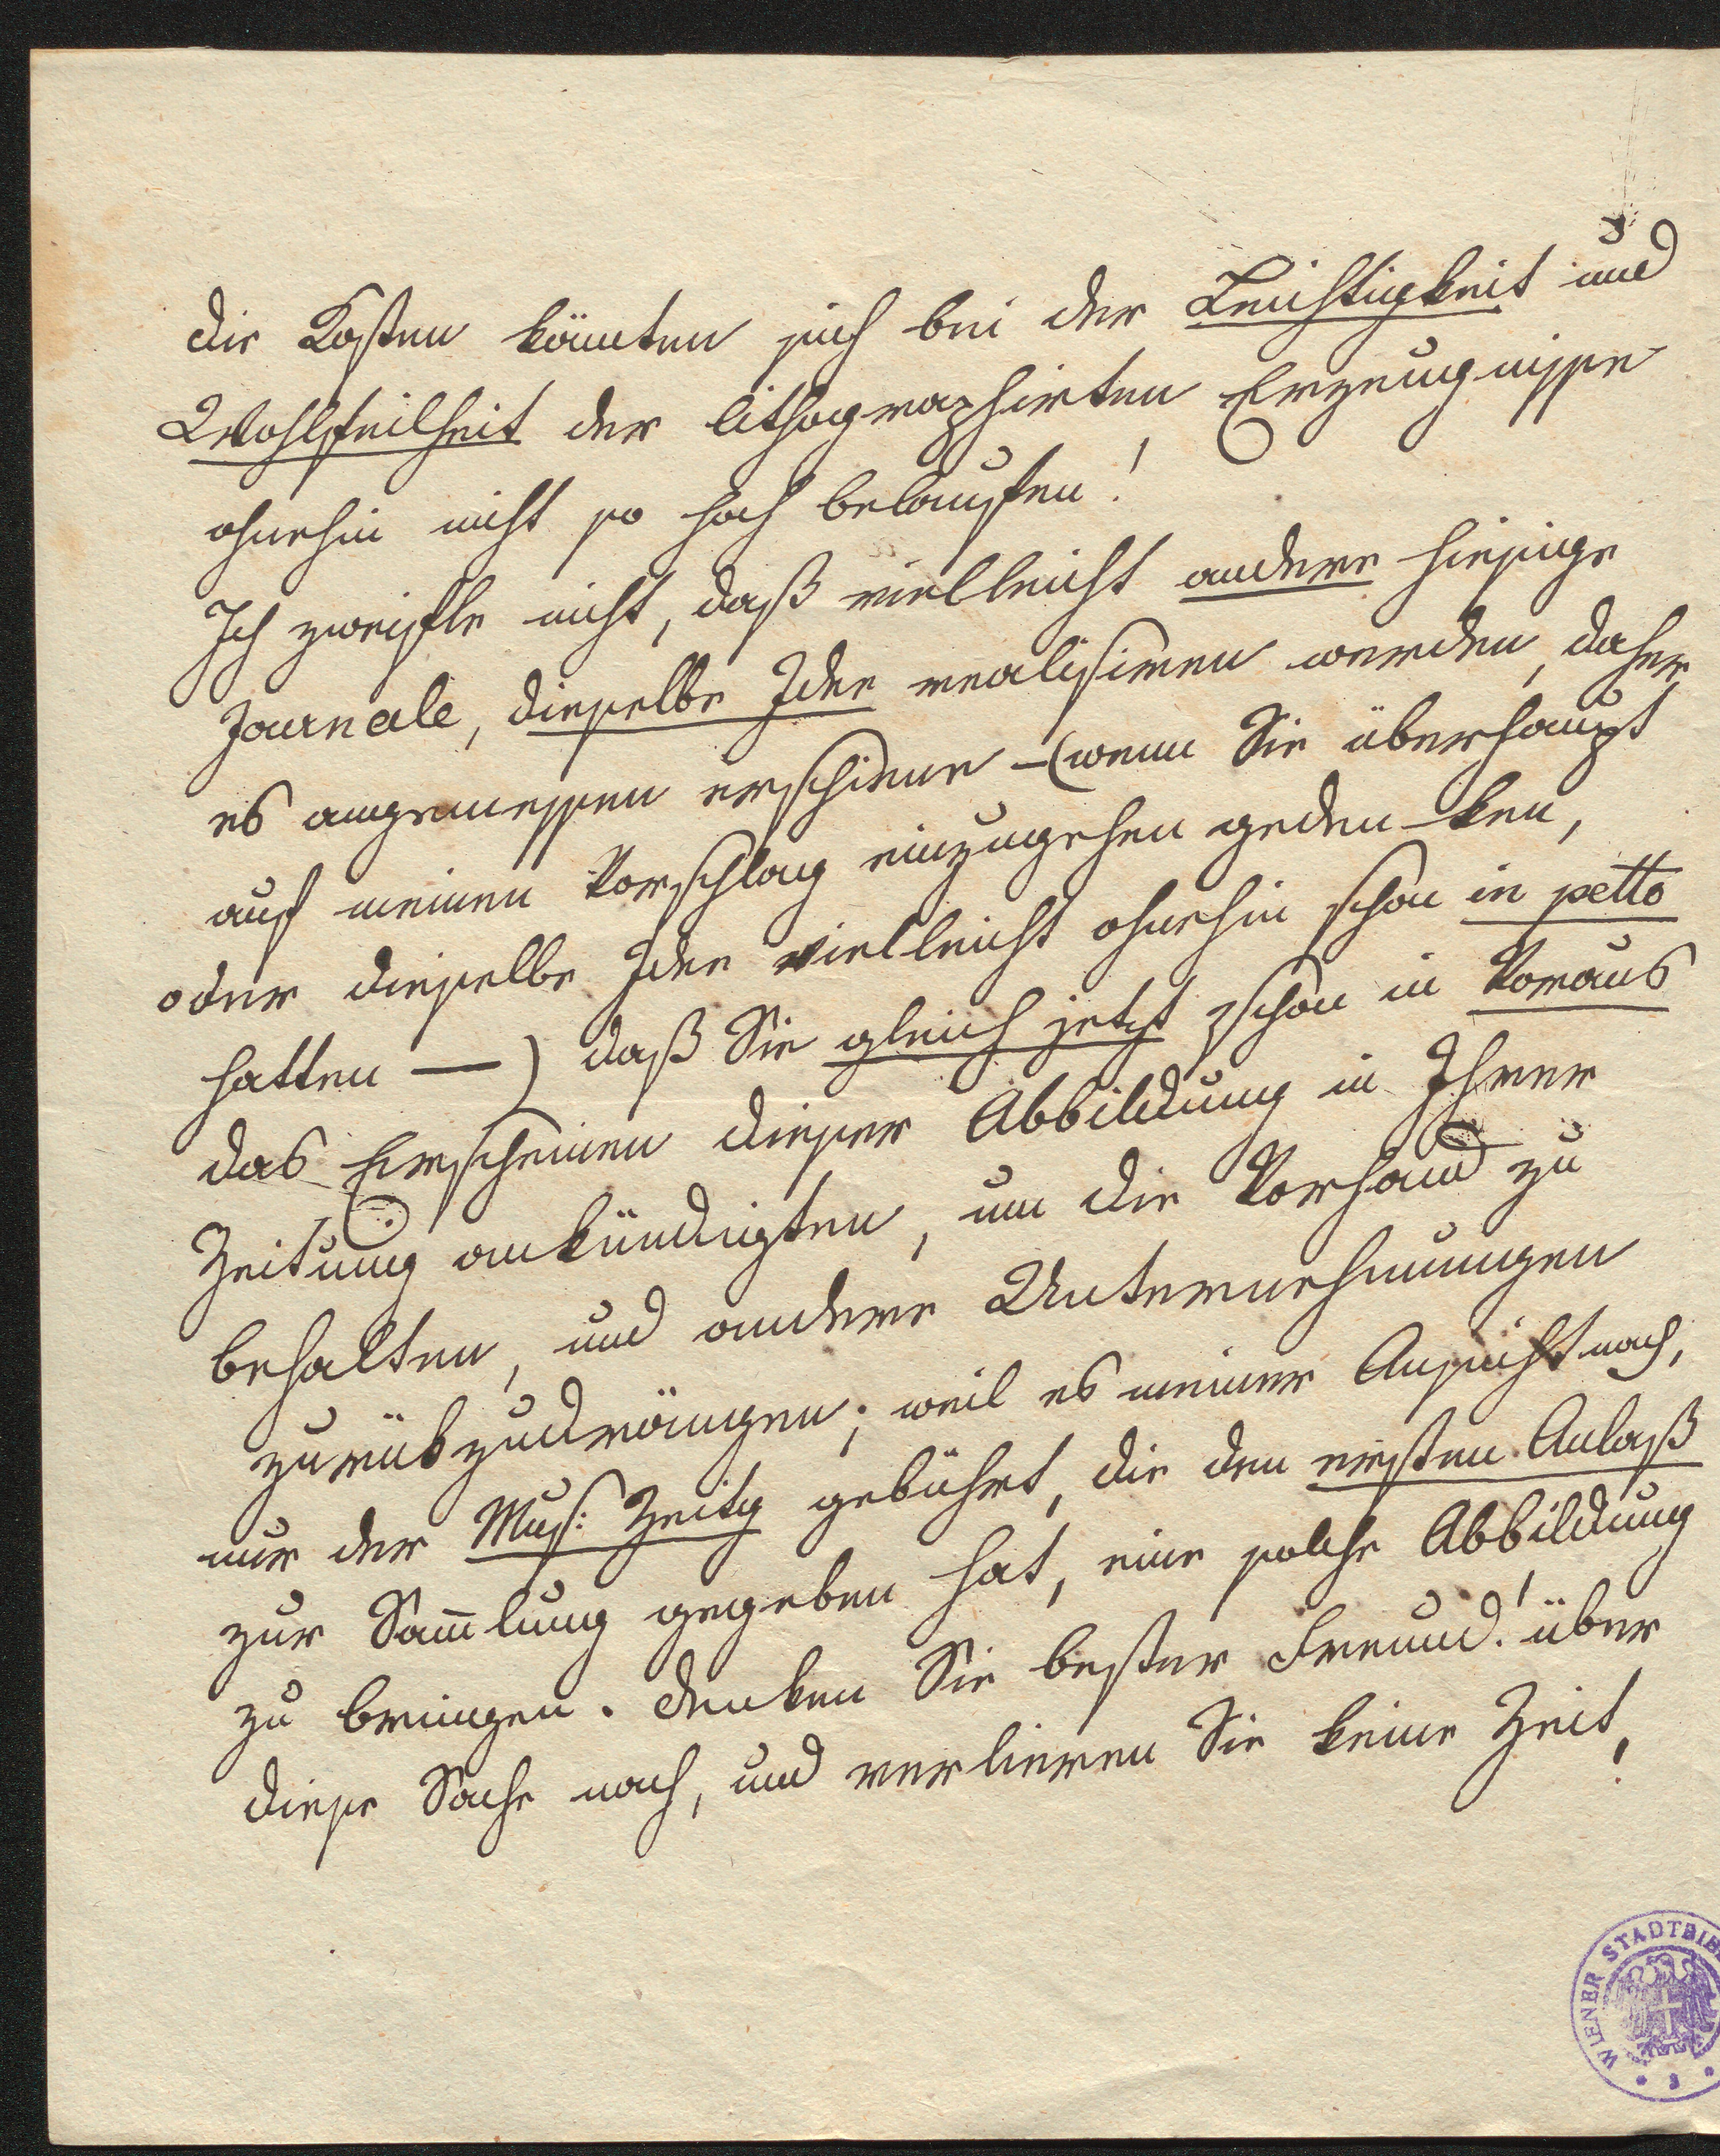 die Kosten könnten sich bei der Leichtigkeit und
Wohlfeilheit der lithographirten Erzeugnisse
ohnehin nicht so hoch belaufen!
Ich zweifle nicht, daß vielleicht andere hiesige
Journale, dieselbe Idee realisiren werden, daher
es angemessen erschiene – (wenn Sie überhaupt
auf meinen Vorschlag einzugehen geden-ken,
oder dieselbe Idee vielleicht ohnehin schon in petto
hatten —) daß Sie gleich jetzt schon in Voraus
das Erscheinen dieser Abbildung in Ihrer
Zeitung ankündigten, um die Vorhand zu
behalten, und andere Unternehmungen
zurükzudrängen; weil es meiner Ansicht nach,
nur der Mus: Zeitg gebührt, die den ersten Anlaß
zur Sam̅lung gegeben hat, eine solche Abbildung
zu bringen. Denken Sie bester Freund! über
diese Sache nach, und verlieren Sie keine Zeit,
WIENER STADTBIB